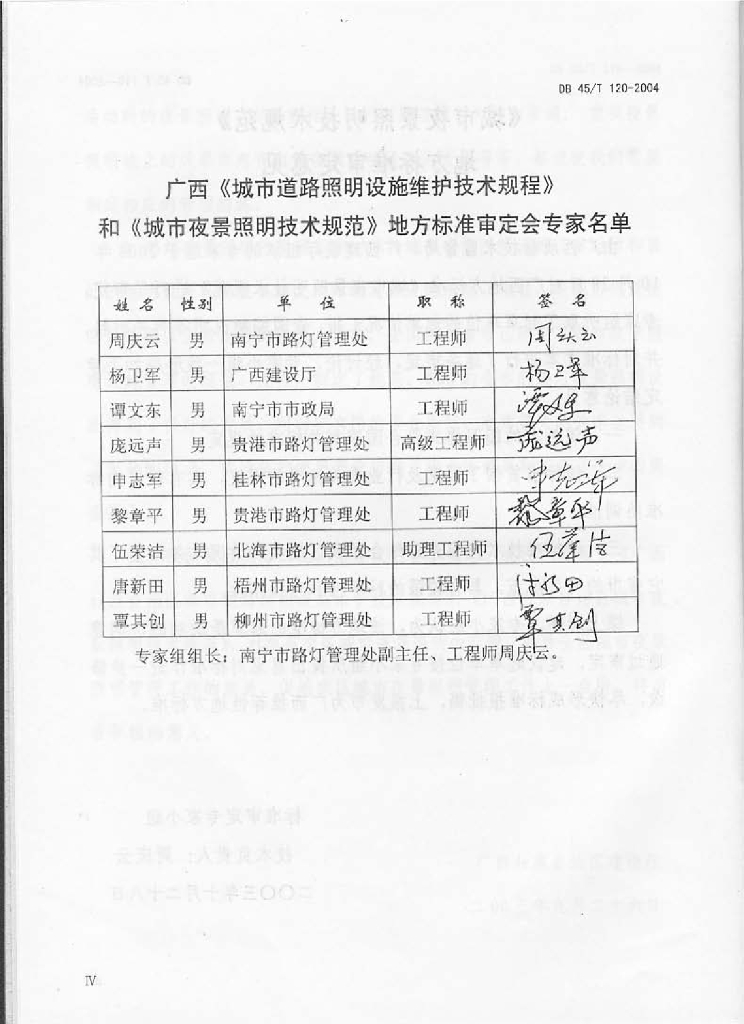 DB 45/T 120-2004
广西《城市道路照明设施维护技术规程》
和《城市夜景照明技术规范》地方标准审定会专家名单
姓 名 性别 单 位 职 称 签 名
周庆云 男 南宁市路灯管理处 工程师 周庆云
杨卫军 男 广西建设厅 工程师 杨卫军
谭文东 男 南宁市市政局 工程师 谭文东
庞远声 男 贵港市路灯管理处 高级工程师 庞远声
申志军 男 桂林市路灯管理处 工程师 申志军
黎章平 男 贵港市路灯管理处 工程师 黎章平
伍荣洁 男 北海市路灯管理处 助理工程师 伍荣洁
唐新田 男 梧州市路灯管理处 工程师
覃其创 男 柳州市路灯管理处 工程师 覃其创
专家组组长：南宁市路灯管理处副主任、工程师周庆云。
IV